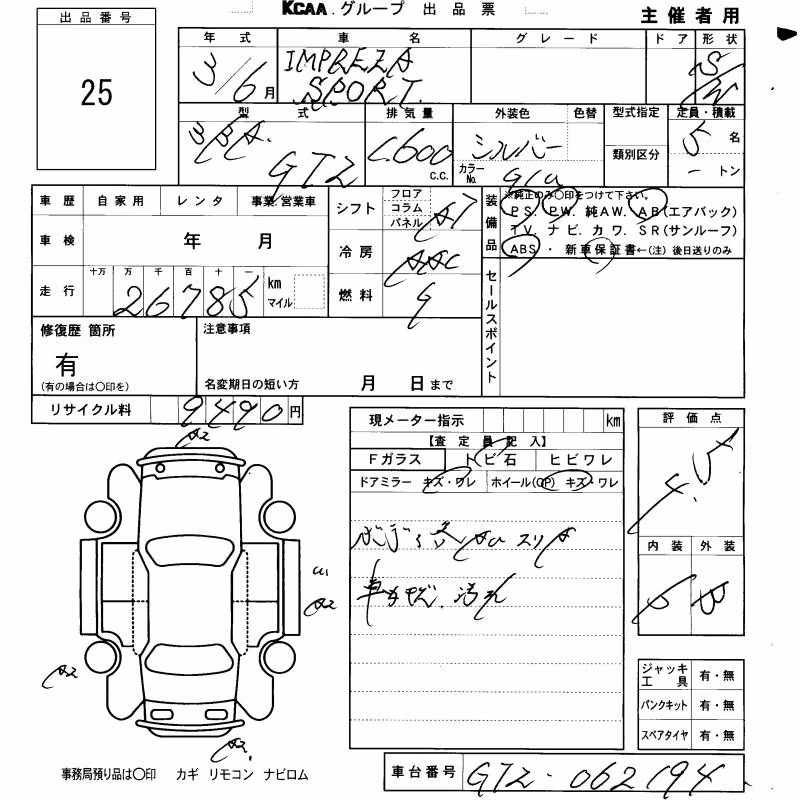 KCAA.グループ 出品票
主催者用
出品番号
25
年式 車名 グレード ドア 形状
3/6月 IMPREZA SPORT S/W
型式 排気量 外装色 色替 型式指定 定員・積載
3BA. GT2 1,600 c.c. シルバー 類別区分 5名
カラーNo. G1U - トン
車歴 自家用 レンタ 事業/営業車
シフト フロア コラム パネル AT
装備品 ※純正のみ〇印をつけて下さい。
PS. PW. 純AW. AB(エアバック)
TV. ナビ. カワ. SR(サンルーフ)
ABS ・ 新車保証書←(注) 後日送りのみ
車検 年 月
冷房 AAC
走行 十万 万 千 百 十 一
26785 km マイル
燃料 G
セールスポイント
修復歴 箇所
有
(有の場合は〇印を)
注意事項
名変期日の短い方 月 日まで
リサイクル料 9490円
現メーター指示 km
【査定員記入】
Fガラス トビ石 ヒビワレ
ドアミラー キズ・ワレ ホイール(CP) キズ・ワレ
車内 汚れ
評価点
4.5
内装 外装
B
A2
A2
A2
A2.
ジャッキ工具 有・無
パンクキット 有・無
スペアタイヤ 有・無
事務局預り品は〇印 カギ リモコン ナビロム
車台番号 GT2-062194